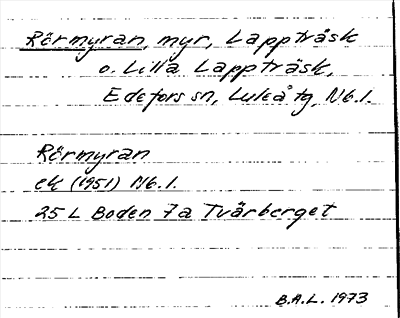 Rörmyran, myr, Lappträsk
o. Lilla Lappträsk,
Edefors sn, Luleå tg, Nb.l.
Rörmyran
ek (1951) Nb.l.
25 L Boden 7a Tvärberget
B.A.L. 1973